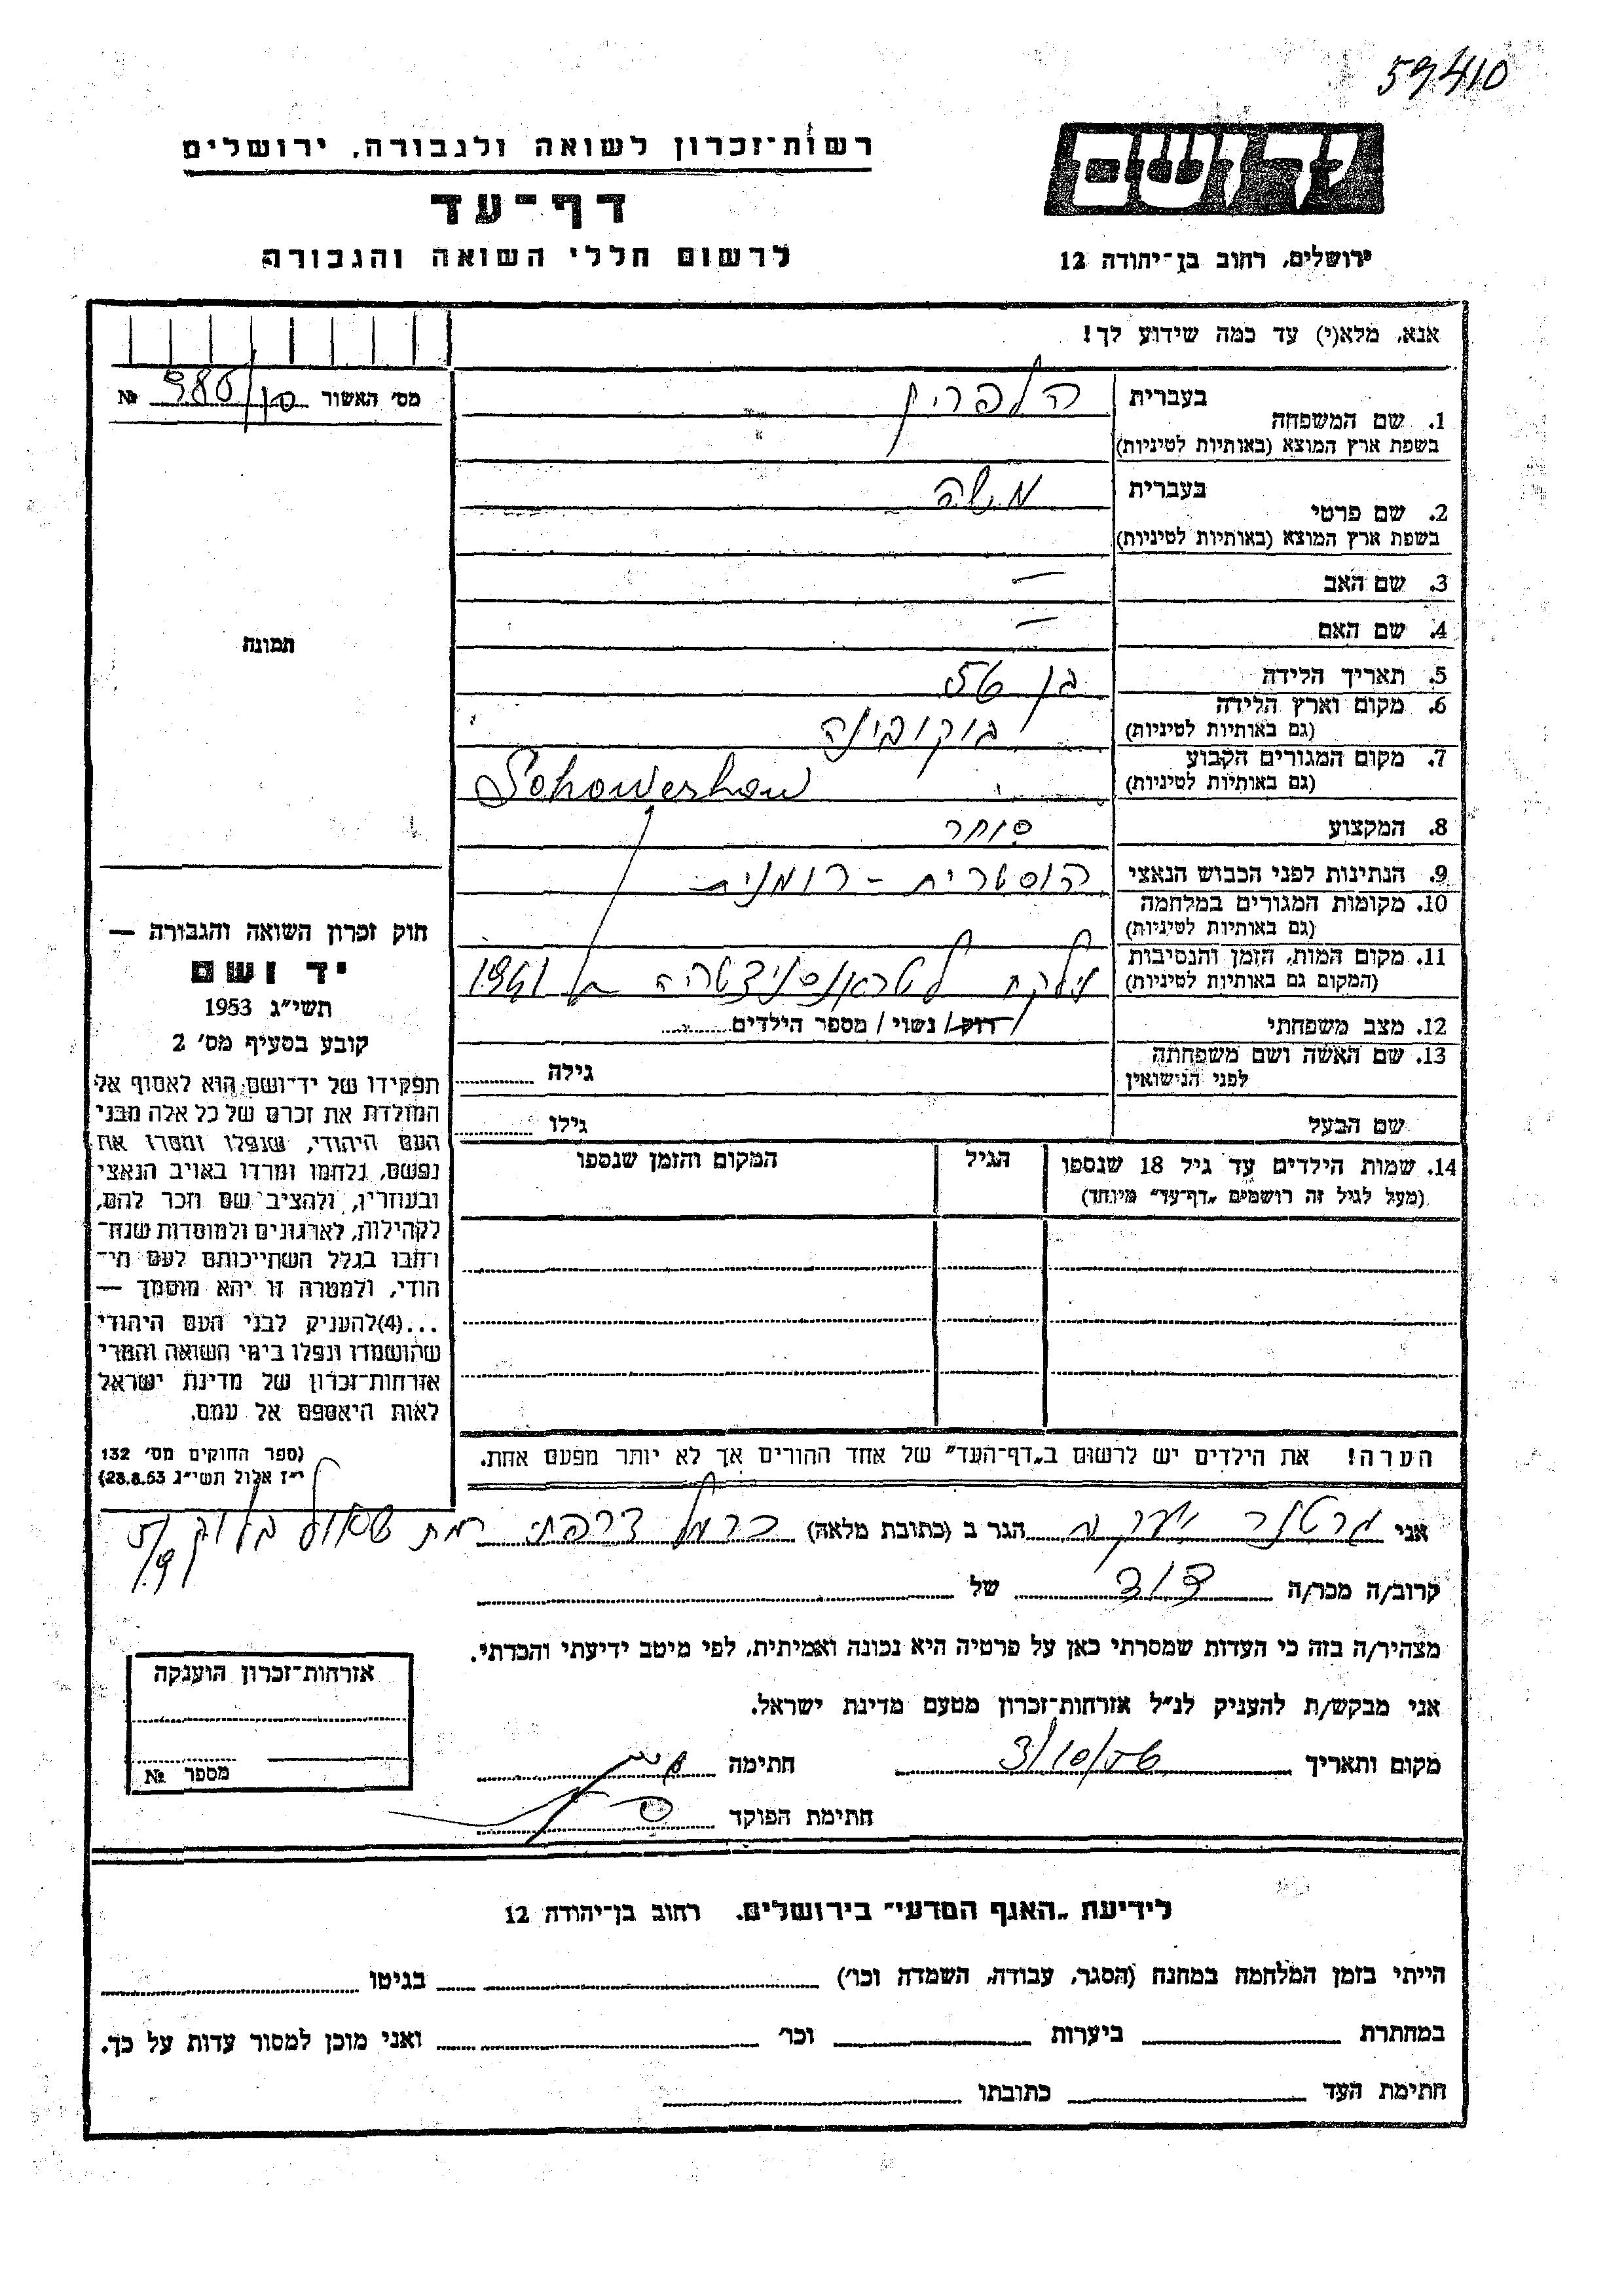 59410
רשות־זכרון לשואה ולגבורה, ירושלים
דף־עד
לרשום חללי השואה והגבורה
יד ושם
ירושלים, רחוב בן־יהודה 12
אנא, מלא(י) עד כמה שידוע לך!
מס׳ האשור №
בעברית הלפרין
1. שם המשפחה
בשפת ארץ המוצא (באותיות לטיניות)
בעברית משה
2. שם פרטי
בשפת ארץ המוצא (באותיות לטיניות)
3. שם האב —
4. שם האם —
תמונה
5. תאריך הלידה בן 56
6. מקום וארץ הלידה בוקובינה
(גם באותיות לטיניות)
7. מקום המגורים הקבוע
(גם באותיות לטיניות)
8. המקצוע סוחר
9. הנתינות לפני הכבוש הנאצי אוסטרית - רומנית
10. מקומות המגורים במלחמה
(גם באותיות לטיניות)
11. מקום המות, הזמן והנסיבות נלקח לטראנסניצטריה ב 1941
(המקום גם באותיות לטיניות)
12. מצב משפחתי רוק / נשוי / מספר הילדים
13. שם האשה ושם משפחתה גילה
לפני הנישואין
שם הבעל גילו
14. שמות הילדים עד גיל 18 שנספו הגיל המקום והזמן שנספו
(מעל לגיל זה רושמים „דף־עד״ מיוחד)
חוק זכרון השואה והגבורה —
יד ושם
תשי״ג 1953
קובע בסעיף מס׳ 2
תפקידו של יד־ושם הוא לאסוף אל
המולדת את זכרם של כל אלה מבני
העם היהודי, שנפלו ומסרו את
נפשם, נלחמו ומרדו באויב הנאצי
ובעוזריו, ולהציב שם וזכר להם,
לקהילות, לארגונים ולמוסדות שנח־
רחבו בגלל השתייכותם לעם הי־
הודי, ולמטרה זו יהא מוסמך —
...(4)להעניק לבני העם היהודי
שהושמדו ונפלו בימי השואה והמרי
אזרחות־זכרון של מדינת ישראל
לאות היאספם אל עמם.
(ספר החוקים מס׳ 132
י״ז אלול תשי״ג 28.8.53)
הערה! את הילדים יש לרשום ב„דף־העד״ של אחד ההורים אך לא יותר מפעם אחת.
אני הגר ב (כתובת מלאה) כרמל צרפתי רמת שאול בלוק
קרוב/ה מכר/ה דוד של
מצהיר/ה בזה כי העדות שמסרתי כאן על פרטיה היא נכונה ואמיתית, לפי מיטב ידיעתי והכרתי.
אני מבקש/ת להעניק לנ״ל אזרחות־זכרון מטעם מדינת ישראל.
מקום ותאריך 3/10/56 חתימה
חתימת הפוקד
אזרחות־זכרון הוענקה
מספר №
לידיעת „האגף המדעי״ בירושלים, רחוב בן־יהודה 12
הייתי בזמן המלחמה במחנה (הסגר, עבודה, השמדה וכו׳) בגיטו
במחתרת ביערות וכו׳ ואני מוכן למסור עדות על כך.
חתימת העד כתובתו